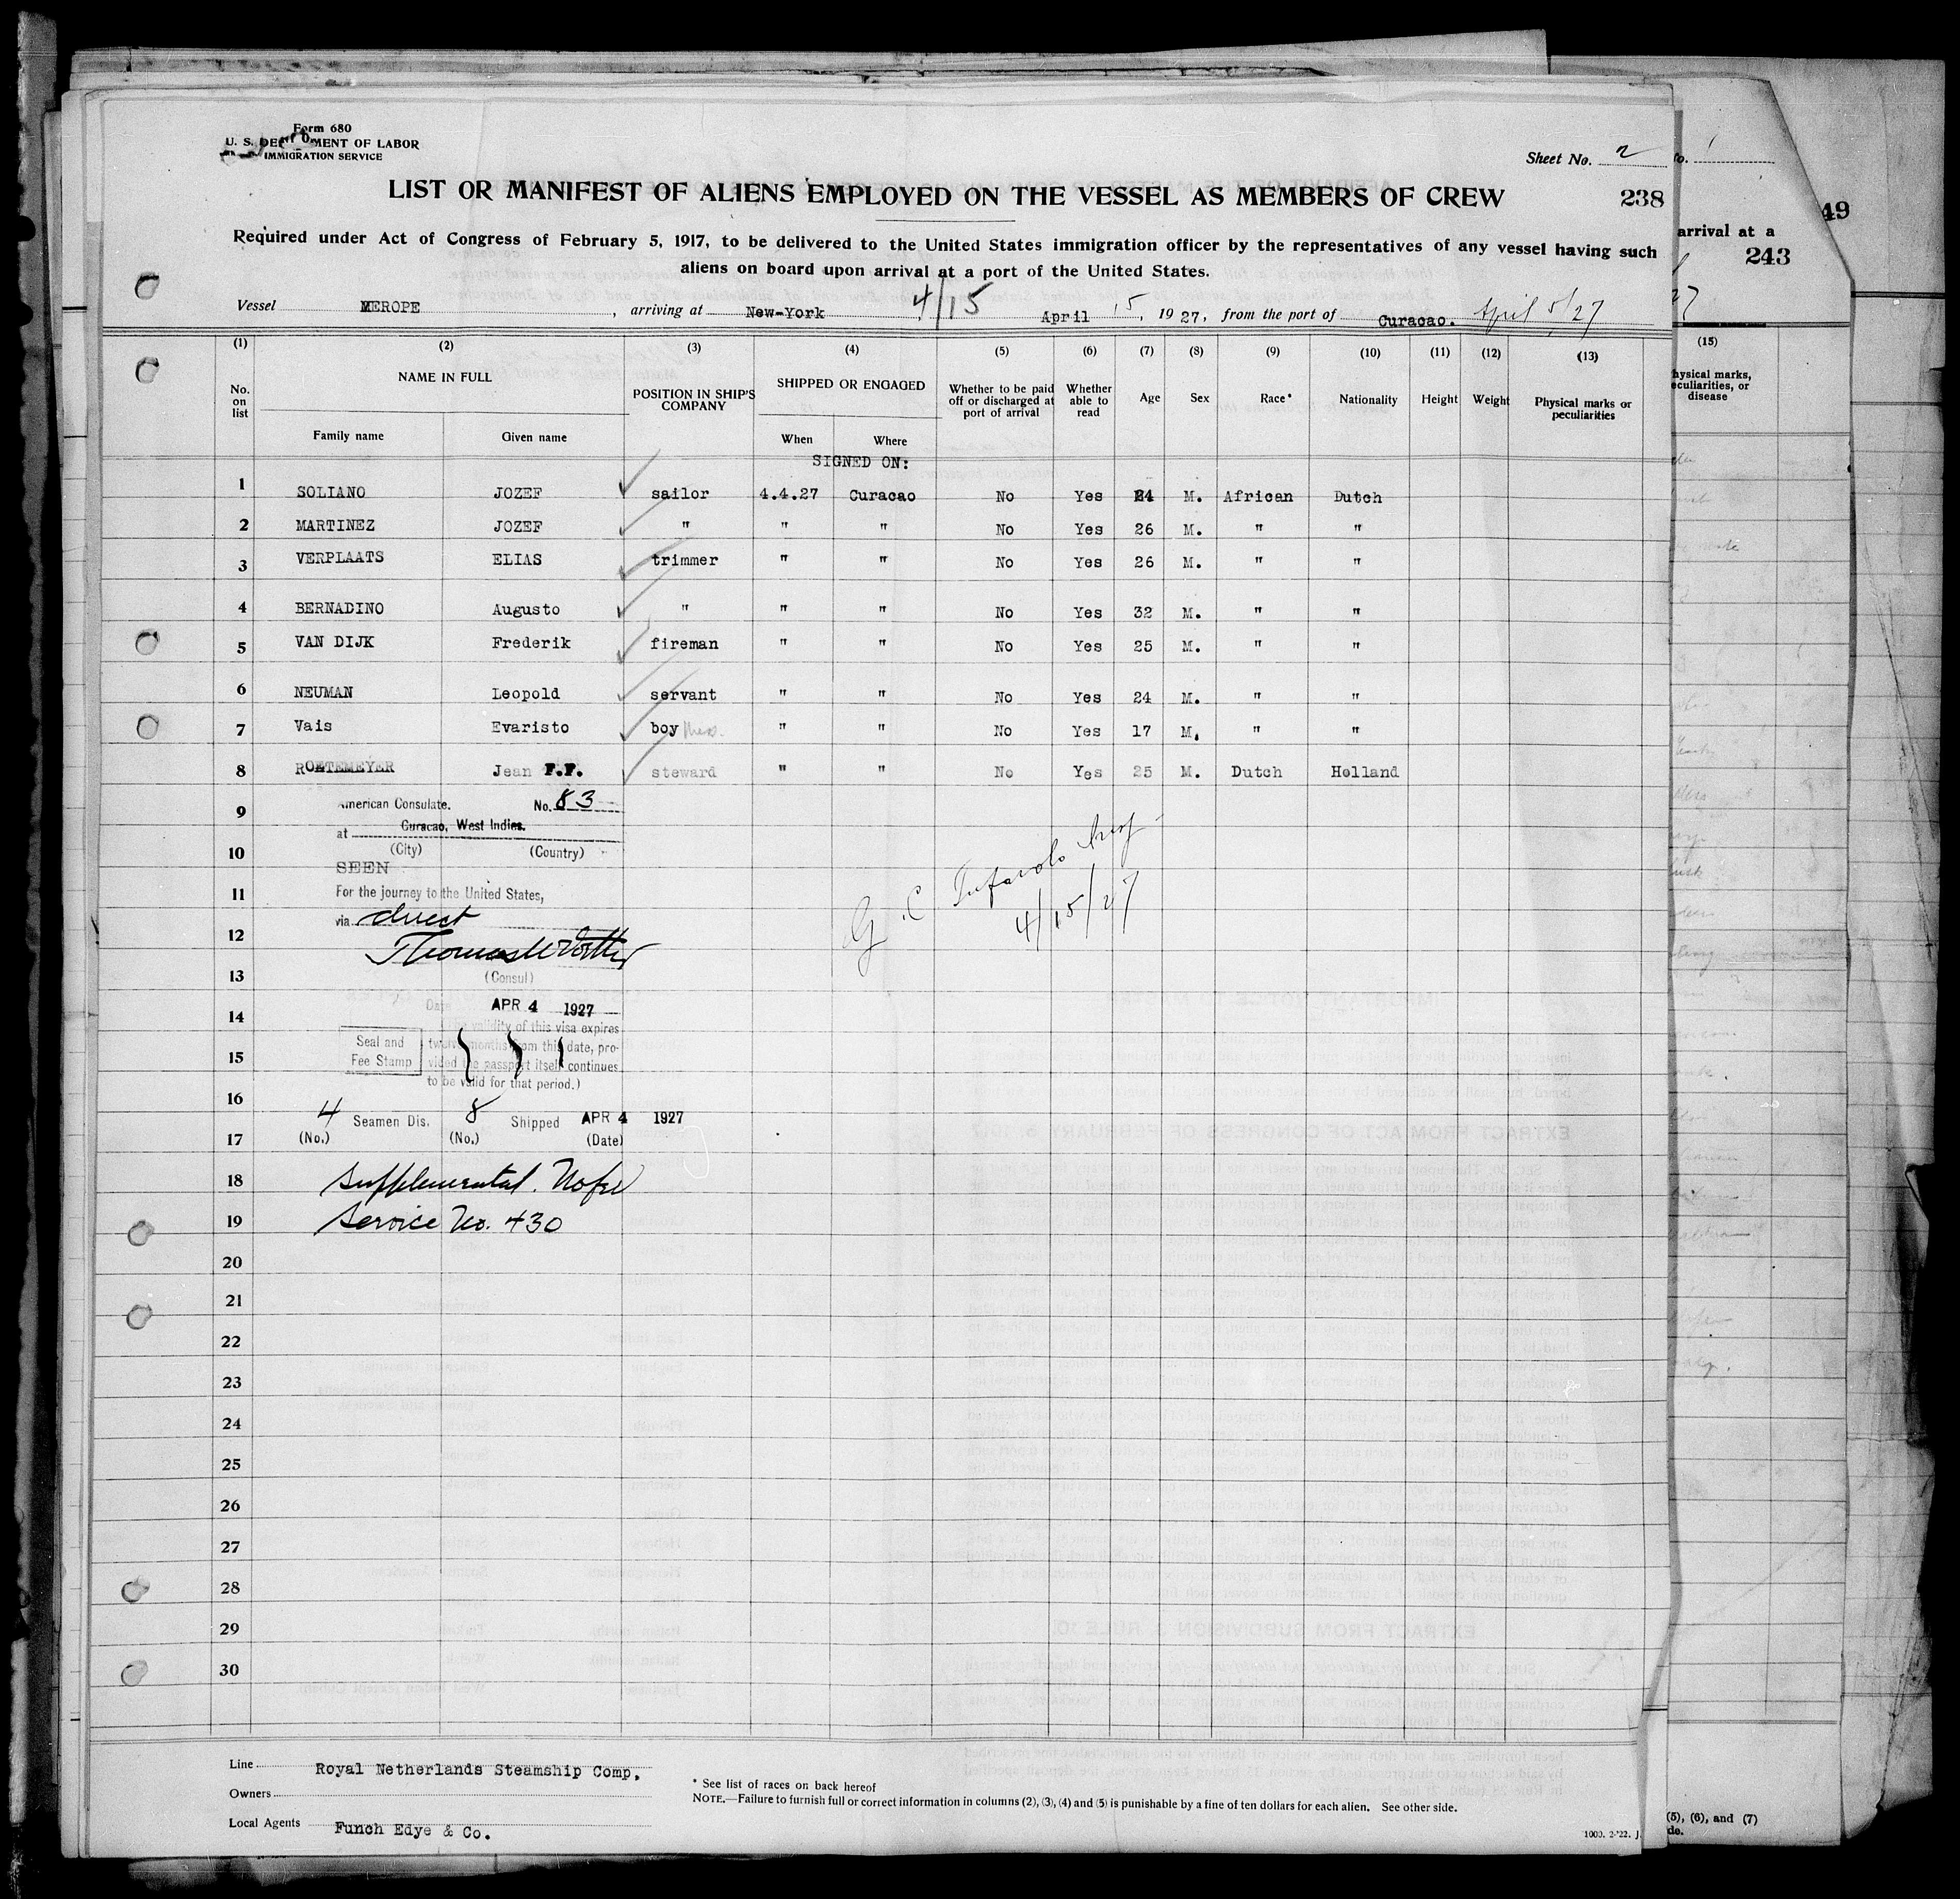 Form 680
U. S. DEPARTMENT OF LABOR
IMMIGRATION SERVICE
Sheet No. 2
LIST OR MANIFEST OF ALIENS EMPLOYED ON THE VESSEL AS MEMBERS OF CREW
238
Required under Act of Congress of February 5, 1917, to be delivered to the United States immigration officer by the representatives of any vessel having such
aliens on board upon arrival at a port of the United States.
Vessel MEROPE, arriving at New-York 4/15 April 15, 1927, from the port of Curacao. April 5/27
(1) (2) (3) (4) (5) (6) (7) (8) (9) (10) (11) (12) (13)
No. on list NAME IN FULL Family name Given name POSITION IN SHIP'S COMPANY SHIPPED OR ENGAGED When Where Whether to be paid off or discharged at port of arrival Whether able to read Age Sex Race* Nationality Height Weight Physical marks or peculiarities
SIGNED ON:
1 SOLIANO JOZEF sailor 4.4.27 Curacao No Yes 24 M. African Dutch
2 MARTINEZ JOZEF " " " No Yes 26 M. " "
3 VERPLAATS ELIAS trimmer " " No Yes 26 M. " "
4 BERNADINO Augusto " " " No Yes 32 M. " "
5 VAN DIJK Frederik fireman " " No Yes 25 M. " "
6 NEUMAN Leopold servant " " No Yes 24 M. " "
7 Vais Evaristo boy Mess. " " No Yes 17 M. " "
8 ROETEMEYER Jean F.F. steward " " No Yes 25 M. Dutch Holland
9
American Consulate. No. 83
at Curacao, West Indies.
10
(City) (Country)
SEEN
11
For the journey to the United States,
via direct
12
(Consul)
13
G. C.
4/15/27
Date APR 4 1927
14
validity of this visa expires
Seal and Fee Stamp
15
twelve months from this date, pro-
vided the passport itself continues
to be valid for that period.)
16
4 Seamen Dis. 8 Shipped APR 4 1927
17
(No.) (No.) (Date)
18
Supplemental. No fee
19
Service No. 430
20
21
22
23
24
25
26
27
28
29
30
Line Royal Netherlands Steamship Comp.
Owners
Local Agents Funch Edye & Co.
* See list of races on back hereof
NOTE.—Failure to furnish full or correct information in columns (2), (3), (4) and (5) is punishable by a fine of ten dollars for each alien. See other side.
1000. 2-'22. J.
49
arrival at a
243
(15)
physical marks,
peculiarities, or
disease
(5), (6), and (7)